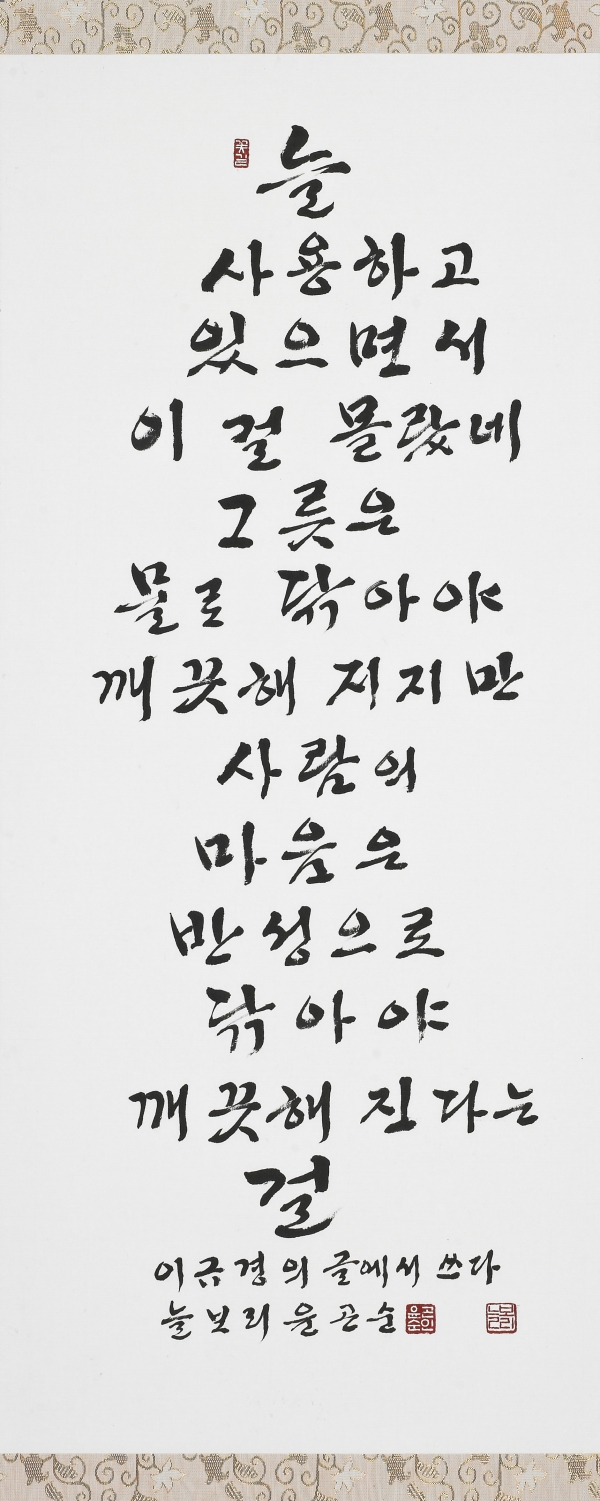 늘
사용하고
있으면서
이 걸 몰랐네
그릇은
물로 닦아야
깨끗해 지지만
사람의
마음은
반성으로
닦아야
깨끗해 진다는
걸
이금경의 글에서 쓰다
늘보리 윤곤순